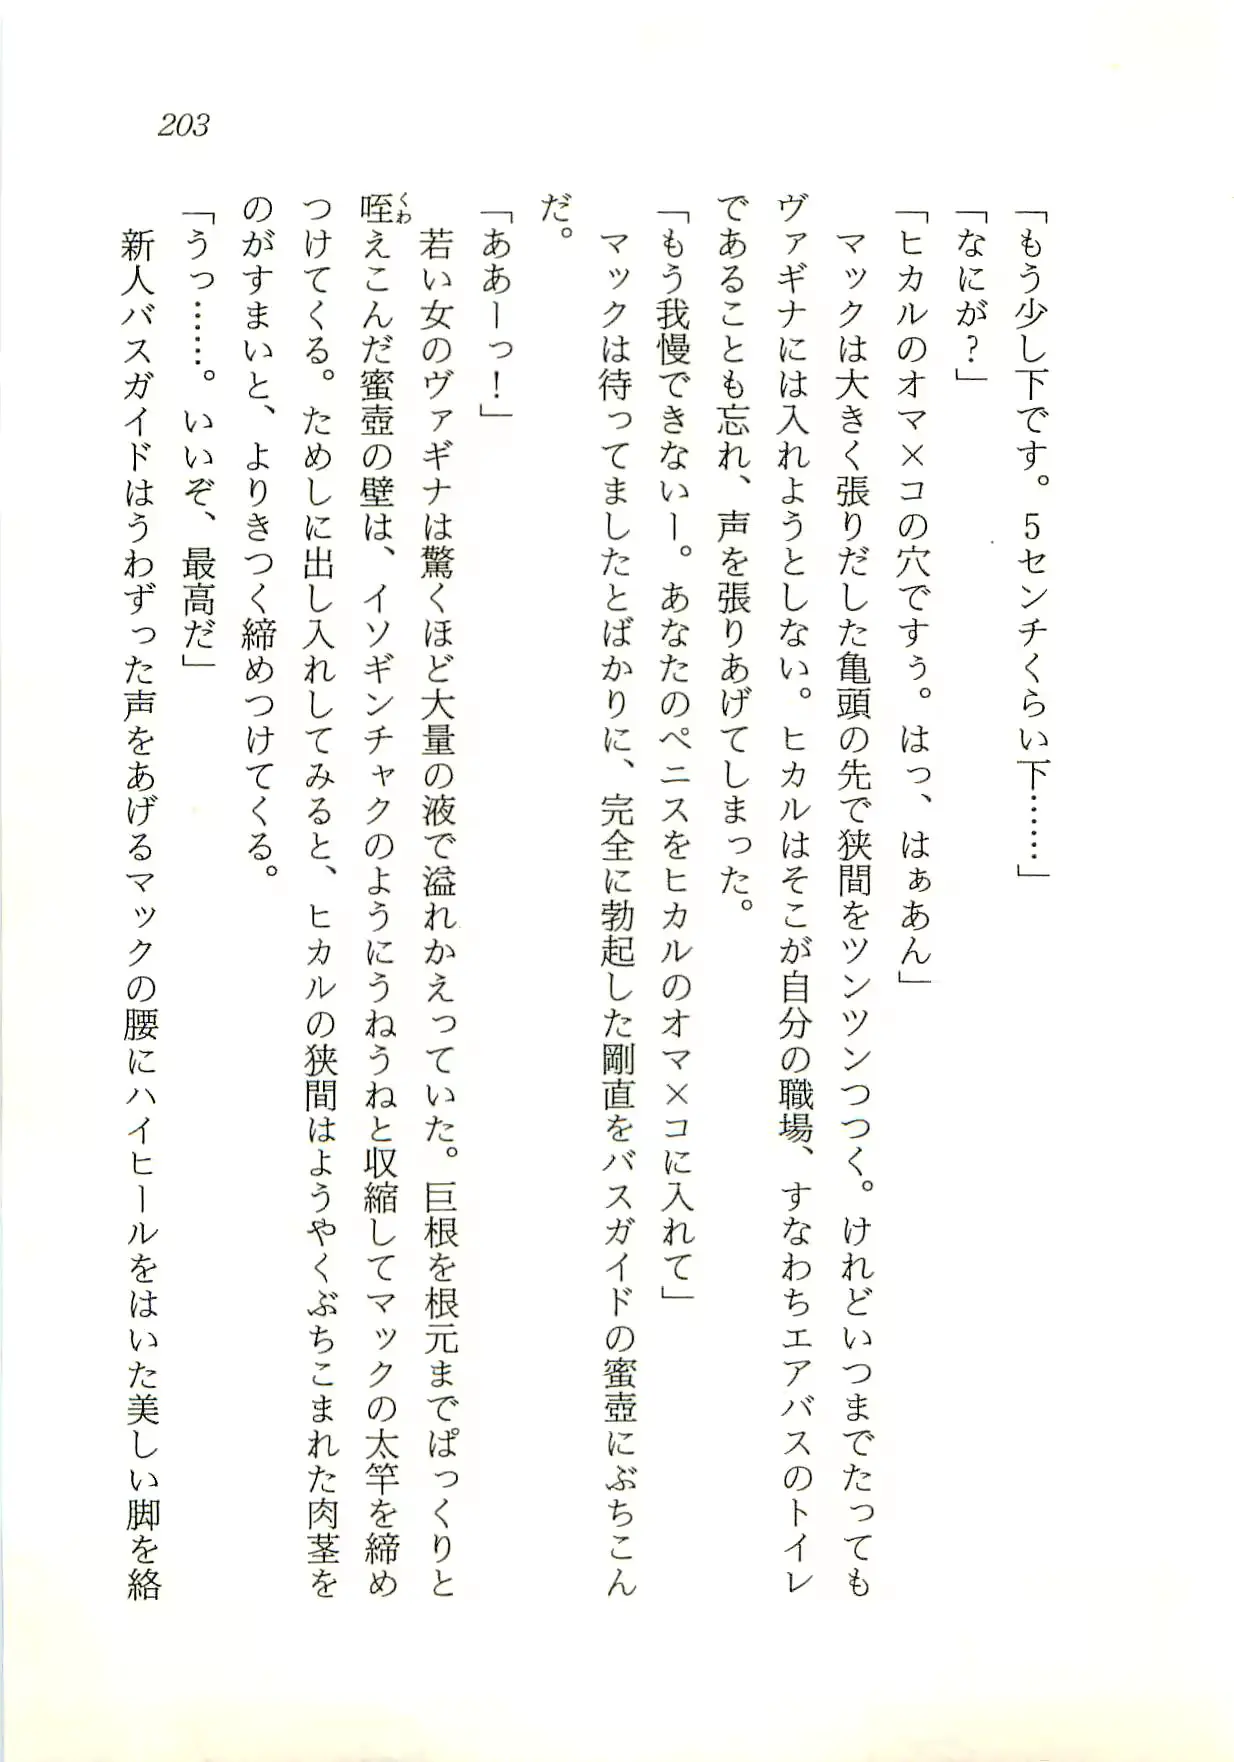 203
「もう少し下です。5センチくらい下……」
「なにが？」
「ヒカルのオマ×コの穴ですぅ。はっ、はぁあん」
　マックは大きく張りだした亀頭の先で狭間をツンツンつつく。けれどいつまでたっても
ヴァギナには入れようとしない。ヒカルはそこが自分の職場、すなわちエアバスのトイレ
であることも忘れ、声を張りあげてしまった。
「もう我慢できないー。あなたのペニスをヒカルのオマ×コに入れて」
　マックは待ってましたとばかりに、完全に勃起した剛直をバスガイドの蜜壺にぶちこん
だ。
「ああーっ！」
　若い女のヴァギナは驚くほど大量の液で溢れかえっていた。巨根を根元までぱっくりと
咥えこんだ蜜壺の壁は、イソギンチャクのようにうねうねと収縮してマックの太竿を締め
くわ
つけてくる。ためしに出し入れしてみると、ヒカルの狭間はようやくぶちこまれた肉茎を
のがすまいと、よりきつく締めつけてくる。
「うっ……。いいぞ、最高だ」
　新人バスガイドはうわずった声をあげるマックの腰にハイヒールをはいた美しい脚を絡